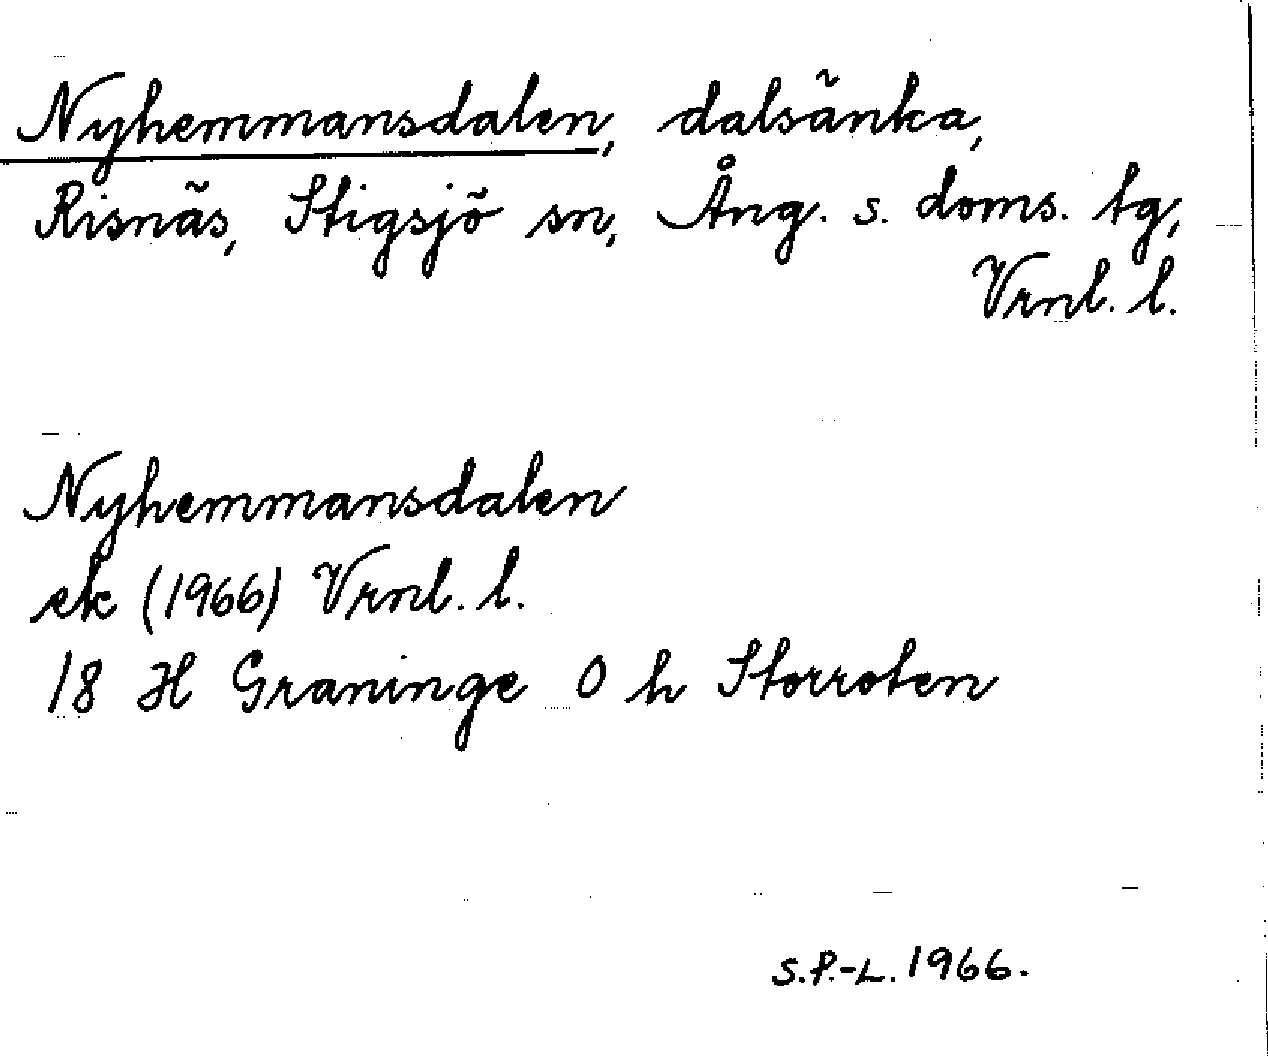 Nyhemmansdalen, dalsänka,
Risnäs, Stigsjö sn, Ång. s. doms. tg,
Vrnl. l.
Nyhemmansdalen
ek (1966) Vrnl. l.
18 H Graninge O h Storroten
S.P.-L. 1966.